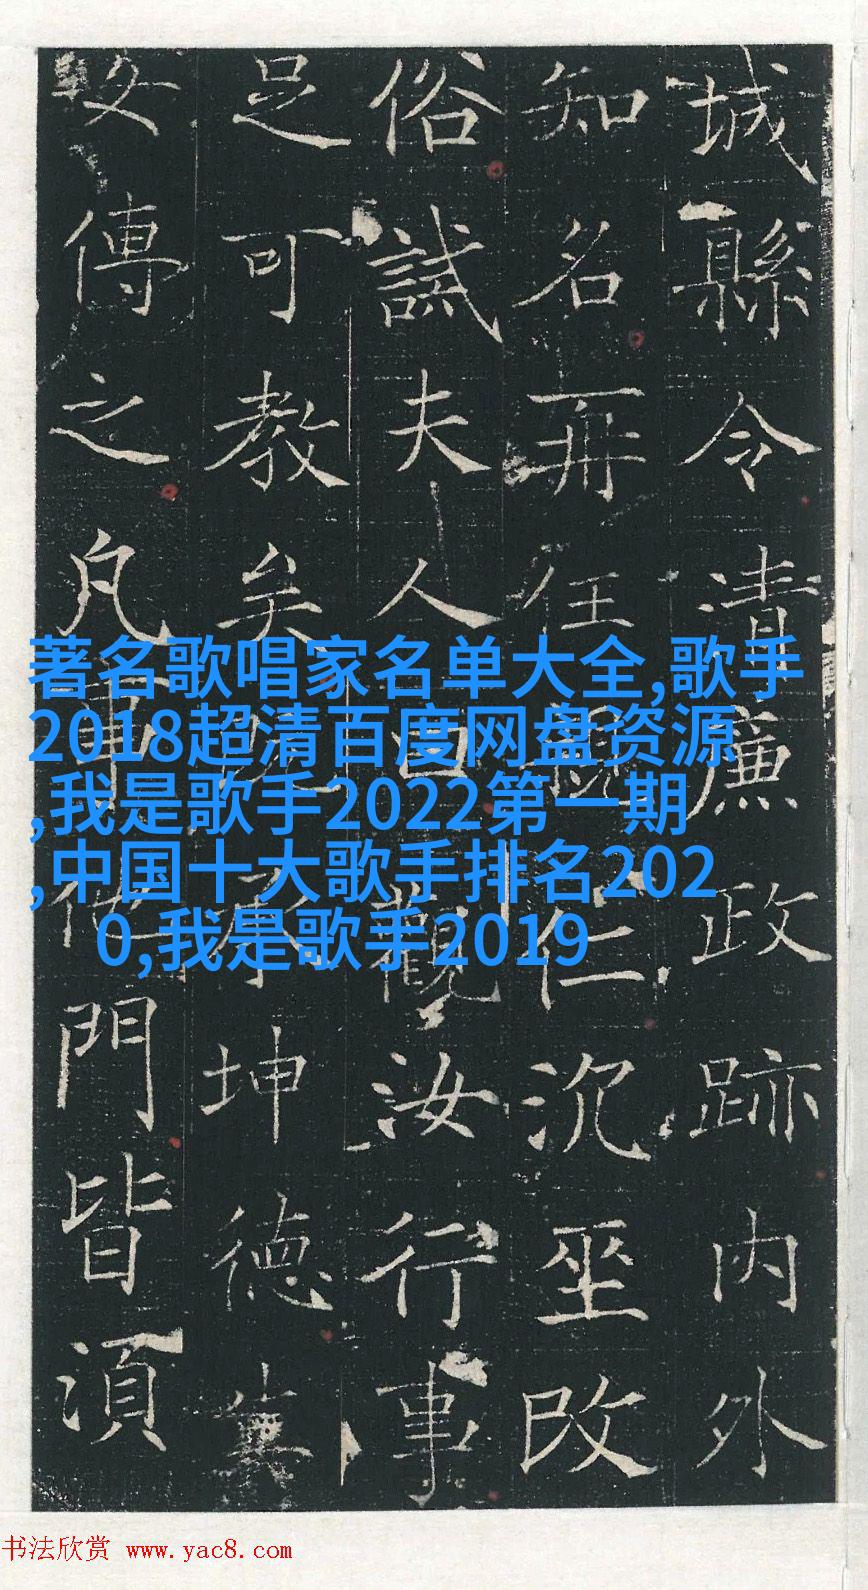 著名歌唱家名单大全,歌手
2018超清百度网盘资源
,我是歌手2022第一期
,中国十大歌手排名202
0,我是歌手2019
城縣令清廉政跡内外
知名再任仁沉坐改
俗試夫人曰觀汝行事
足可教矣既承坤德
傳之凡事門皆須
书法欣赏 www.yac8.com